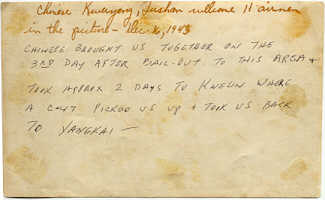 Chinese Kwangong, Fushan welcome 11 airmen
in the picture - Dec. 26, 1943
CHINESE BROUGHT US TOGETHER ON THE
3RD DAY AFTER BAIL-OUT TO THIS AREA +
TOOK APPROX 2 DAYS TO KWELIN WHERE
A C-47 PICKED US UP + TOOK US BACK
TO YANGKAI —